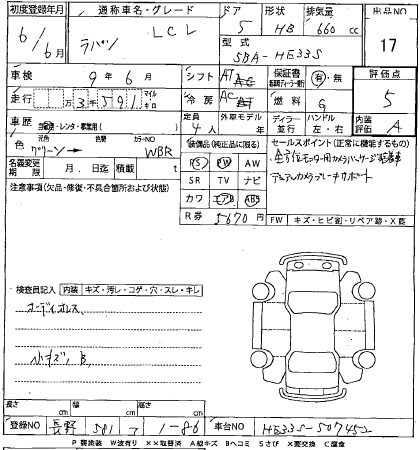 初度登録年月 通称車名・グレード ドア 形状 排気量 出品NO
6/6月 ラパン LCL 5 HB 660 cc 17
型式 5BA-HE33S
車検 9年 6月 シフト AT 保証書 有・無 評価点
走行 万 3千591 マイル キロ 冷房 AC 燃料 G 5
車歴 自家用・レンタ・事業用 定員 4人 外車モデル年 ディーラー 並行 ハンドル 左・右 内装 A
色 元色 グリーン 色替 カラーNO WBR
装備品(純正品に限る) セールスポイント(正常に機能するもの)
名義変更期限 月 日迄 積載 t
PS PW AW
全方位モニター用カメラパッケージ
注意事項(欠品・修復・不具合箇所および状態)
SR TV ナビ
デュアルカメラブレーキサポート
カワ エアB ABS
R券 5670円
FW キズ・ヒビ割・リペア跡・X要
検査員記入 内装 キズ・汚レ・コゲ・穴・スレ・キレ
小キズ B
長さ cm 幅 cm 高さ cm
登録NO 長野 581 ワ 1-86 車台NO HE33S-507452
P要塗装 W波有り ××取替済 A線キズ Bヘコミ Sさび X要交換 C腐食